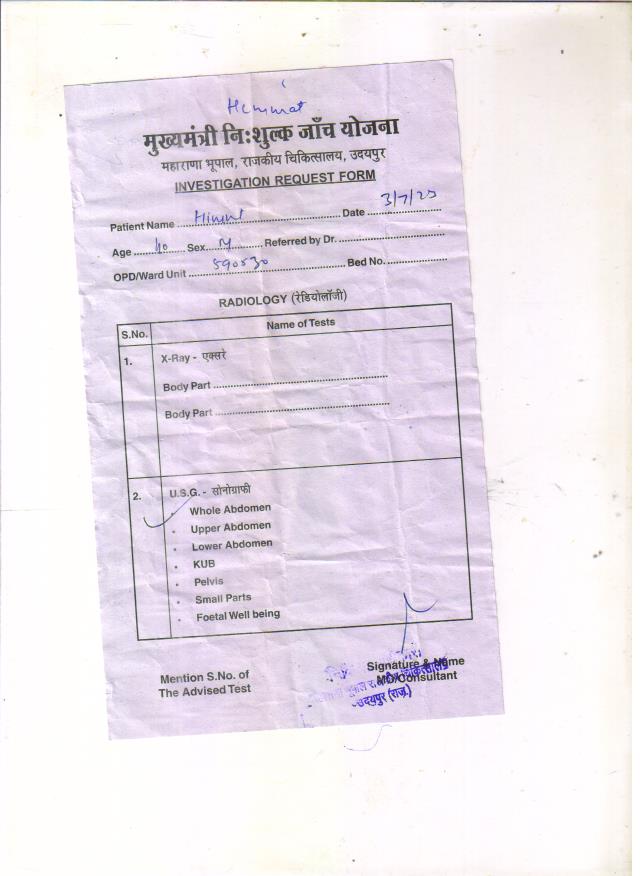 Himmat
मुख्यमंत्री नि:शुल्क जाँच योजना
महाराणा भूपाल, राजकीय चिकित्सालय, उदयपुर
INVESTIGATION REQUEST FORM
Patient Name Himmt Date 3/7/25
Age 40 Sex M Referred by Dr.
OPD/Ward Unit 590530 Bed No.
RADIOLOGY (रेडियोलॉजी)
S.No. Name of Tests
1. X-Ray - एक्सरे
Body Part
Body Part
2. U.S.G. - सोनोग्राफी
Whole Abdomen
Upper Abdomen
Lower Abdomen
KUB
Pelvis
Small Parts
Foetal Well being
Mention S.No. of
The Advised Test
Signature & Name
MO/Consultant
उदयपुर (राज.)